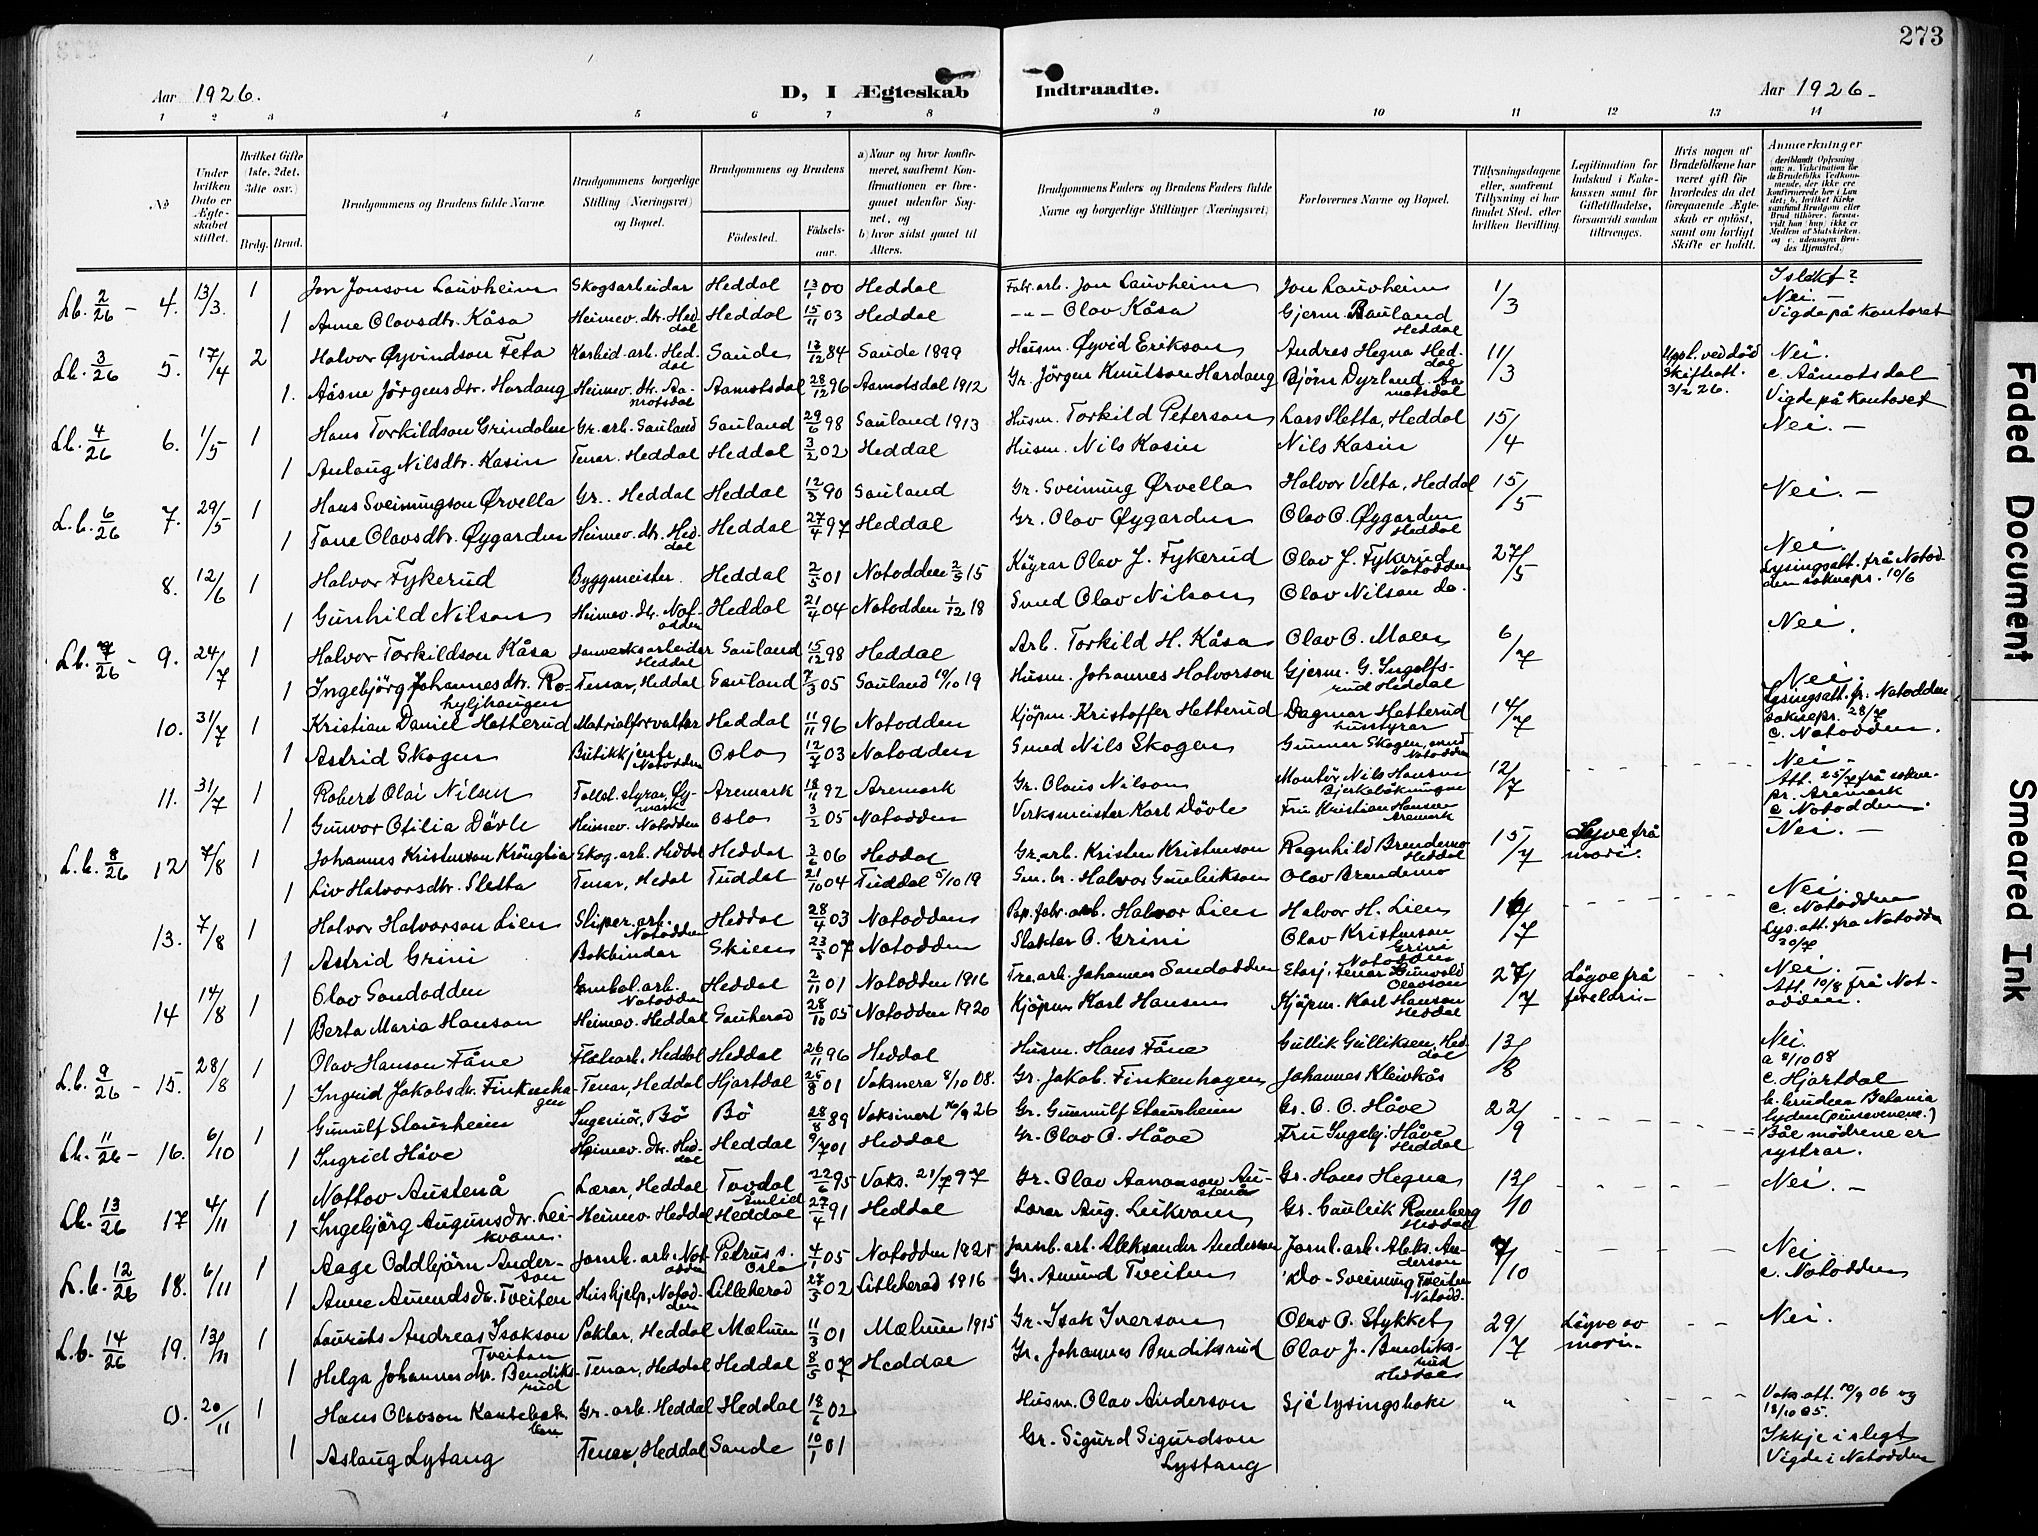 273
Aar 1926.
D, I Ægteskab Indtraadte.
Aar 1926.
1 2 3 4 5 6 7 8 9 10 11 12 13 14
No
Under hvilken Dato er Ægteskabet stiftet.
Hvilket Gifte (1ste, 2det, 3die osv.)
Brdg. Brud.
Brudgommens og Brudens fulde Navne
Brudgommens borgerlige Stilling (Næringsvei) og Bopæl.
Brudgommens og Brudens
Fødested.
Fødsels-aar.
a) Naar og hvor konfirmeret, saafremt Konfirmationen er foregaaet udenfor Sognet, og
b) hvor sidst gaaet til Alters.
Brudgommens Faders og Brudens Faders fulde Navne og borgerlige Stillinger (Næringsvei)
Forlovernes Navne og Bopæl.
Tillysningsdagene eller, saafremt Tillysning ei har fundet Sted, efter hvilken Bevilling
Legitimation for Indskud i Enkekassen samt for Giftetilladelse, forsaavidt saadan tiltrænges.
Hvis nogen af Brudefolkene har været gift før hvorledes da det foregaaende Ægteskab er opløst, samt om lovligt Skifte er holdt.
Anmærkninger
Lb. 2/26 - 4. 13/3. 1 Jon Jonson Lauvheim Skogsarbeidar Heddal 13/1 00 Heddal Fabr. arb. Jon Lauvheim Jon Lauvheim 1/3 I slekt? Nei. -
1 Anne Olavsdtr. Kåsa Heimev. dtr. Heddal Heddal 15/11 03 Heddal -"- Olav Kåsa Gjerm. Bauland Heddal Vigde på kontoret
Lb. 3/26 5. 17/4 2 Halvor Øyvindson Feta Karbid. arb. Heddal Saude 12/12 84 Saude 1899 Husm. Øyvid Erikson Andres Hegna Heddal 11/3 Uppl. ved død Skifteatt. 3/2 26. Nei.
1. Aasne Jörgensdtr. Hardang Heimev. dtr. Aamotsdal Aamotsdal 28/12 96 Aamotsdal 1912 Gr. Jörgen Knutson Hardang Bjørn Dyrland Aamotsdal c. Åmotsdal Vigde på kontoret
Lb. 4/26 6. 1/5 1 Hans Torkildson Grindalen Gr. arb. Sauland Sauland 29/6 98 Sauland 1913 Husm. Torkild Peterson Lars Sletta, Heddal 15/4 Nei. -
1 Anlaug Nilsdtr. Kasin Tenar. Heddal Heddal 3/2 02 Heddal Husm. Nils Kasin Nils Kasin
L.b. 6/26 7. 29/5 1 Hans Sveinungson Ørvella Gr. Heddal Heddal 12/3 90 Sauland Gr. Sveinung Ørvella Halvor Velta, Heddal 15/5 Nei. -
1 Tone Olavsdtr. Øygarden Heimev. dtr. Heddal Heddal 27/4 97 Heddal Gr. Olav Øygarden Olav O. Øygarden Heddal
8. 12/6 1 Halvor Fykerud Byggmeister. Heddal 2/5 01 Notodden 2/5 15 Köyrar Olav J. Fykerud Olav J. Fykerud Notodden 27/5 Nei. Lysingsatt. frå Notodden soknepr. 10/6
1 Gunhild Nilson Heimev. dtr. Notodden Heddal 21/4 04 Notodden 1/12 18 Smed Olav Nilson Olav Nilson do.
Lb. 7/26 - 9. 24/7 1 Halvor Torkildson Kåsa Jarnverksarbeider Heddal Sauland 15/12 98 Heddal Arb. Torkild H. Kåsa Olav O. Moen 6/7 Nei.
1 Ingebjörg Johannesdtr. Rohyljhaugen Tenar, Heddal Sauland 7/3 05 Sauland 19/10 19 Husm. Johannes Halvorson Gjerm. G. Ingolfsrud Heddal
10. 31/7 1 Kristian Daniel Hetterud Matrialforvaltar Heddal 11/11 96 Notodden Kjöpm. Kristoffer Hetterud Dagmar Hetterud hustyrar 14/7 Nei. Lysingsatt. fr. Notodden soknepr. 28/7 c. Notodden.
1 Astrid Skogen Butikkjente Notodden Oslo 12/7 03 Notodden Smed Nils Skogen Gunnar Skogen, smed Notodden
11. 31/7 1 Robert Olai Nilsen Tollol. styrar, Øymark Aremark 18/11 92 Aremark Gr. Olaus Nilson Montör Nils Hansen 12/7 Nei - Att. 25/7 frå soknepr. Aremark c. Notodden.
1 Gunvor Otilia Dövle Heimev. Notodden Oslo 3/2 05 Notodden Verksmeister Karl Dövle Fru Kristian Hansen Aremark
L.b. 8/26 12 7/8 1 Johannes Kristenson Krönglia Skog. arb. Heddal Heddal 3/6 06 Heddal Gr. arb. Kristen Kristenson Ragnhild Brendemo Heddal 15/7 Löyve frå mori. Nei. -
1 Liv Halvorsdtr. Sletta Tenar, Hedal Tuddal 21/10 04 Tuddal 5/10 19 Gm. br. Halvor Gunleikson Olav Brendemo
13. 7/8 1 Halvor Halvorson Lien Sliper. arb. Notodden Heddal 28/4 03 Notodden Pap. fabr. arb. Halvor Lien Halvor H. Lien 16/7 Nei. c. Notodden Lys. att. fra Notodden 20/7
1 Astrid Grini Bokbindar Skien 23/5 07 Notodden Slakter O. Grini Olav Kristenson Grini Notodden
14 14/8 1 Olav Sandodden Embal. arb. Notodden Heddal 2/11 01 Notodden 1916 Tra. arb. Johannes Sandodden Stasj. tenar Gunvald Olavson 27/7 Löyve frå foreldri - Nei. - Att. 10/8 frå Notodden.
1 Berta Maria Hanson Heimev. Heddal Sauherad 28/10 05 Notodden 1920 Kjöpm Karl Hansen Kjöpm. Karl Hanson Heddal
L.b. 9/26 - 15. 28/8 1 Olav Hanson Fåne Flöbarb. Heddal Heddal 26/11 96 Heddal Husm. Hans Fåne Gullik Gulliksen, Heddal 13/8 Nei.
1 Ingrid Jakobsdtr. Finkenhagen Tenar, Heddal Hjartdal 25/8 01 Vaksinera 8/10 08. Gr. Jakob Finkenhagen Johannes Kleivkås a 8/10 08 c. Hjartdal
Lb. 11/26 - 16. 6/10 1 Gunulf Staursheim Ingeniör, Bö Bö 28/8 89 Vaksinert 16/9 26 Gr. Gunnulf Staursheim Gr. O. O. Håve 22/9 b. brudea Betania lyden (pinsevenene.)
1 Ingrid Håve Heimev. dtr. Heddal Heddal 9/7 01 Heddal Gr. Olav O. Håve Fru Ingebj. Håve Heddal Båe mödrene er systrar.
Lb. 13/26 17 4/11 1 Nottov Austenå Lærar, Heddal Tovdal Åmlid 22/6 95 Vaks. 21/7 97 Gr. Olav Aanonson Austenå Gr. Hans Hegna 13/10 Nei. -
1 Ingebjörg Augunsdtr. Leikvam. Heimev. Heddal Heddal 27/4 91 Heddal Lærar Aug. Leikvam Gr. Gauleik Ramberg Heddal
L.b. 12/26 18. 6/11 1 Aage Oddbjörn Anderson Jarnb. arb. Notodden Petrus s. Oslo 4/1 05 Notodden 1821 Jarnb. arb. Aleksander Anderson Jarnb. arb. Aleks. Anderson 7/10 Nei
1 Anne Amundsdtr. Tveiten Hushjelp, Notodden Lilleherad 27/5 02 Lilleherad 1916 Gr. Amund Tveiten Do - Sveinung Tveiten Notodd. c. Notodden
L.b. 14/26 19. 13/11 1 Laurits Andreas Isakson Tveitan Paktar, Heddal Mælum 11/3 01 Mælum 1915 Gr. Isak Iverson Olav O. Stykket 29/7 Löyve av mori. Nei.
1 Helga Johannesdtr. Bendiksrud Tenar, Heddal Heddal 8/5 07 Heddal Gr. Johannes Bendiksrud Olav J. Bendiksrud Heddal
0. 20/11 1 Hans Olavson Kastebakken Gr. arb. Heddal Heddal 18/6 02 Husm. Olav Anderson Sjå lysingsboki " Vaks. att. 10/9 06 og 18/10 05.
1 Aslaug Lytang Tenar, Heddal Sande 10/1 01 Gr. Sigurd Sigurdson Lystang Ikkje i slegt Vigde i Notodden
Faded Document
Smeared Ink